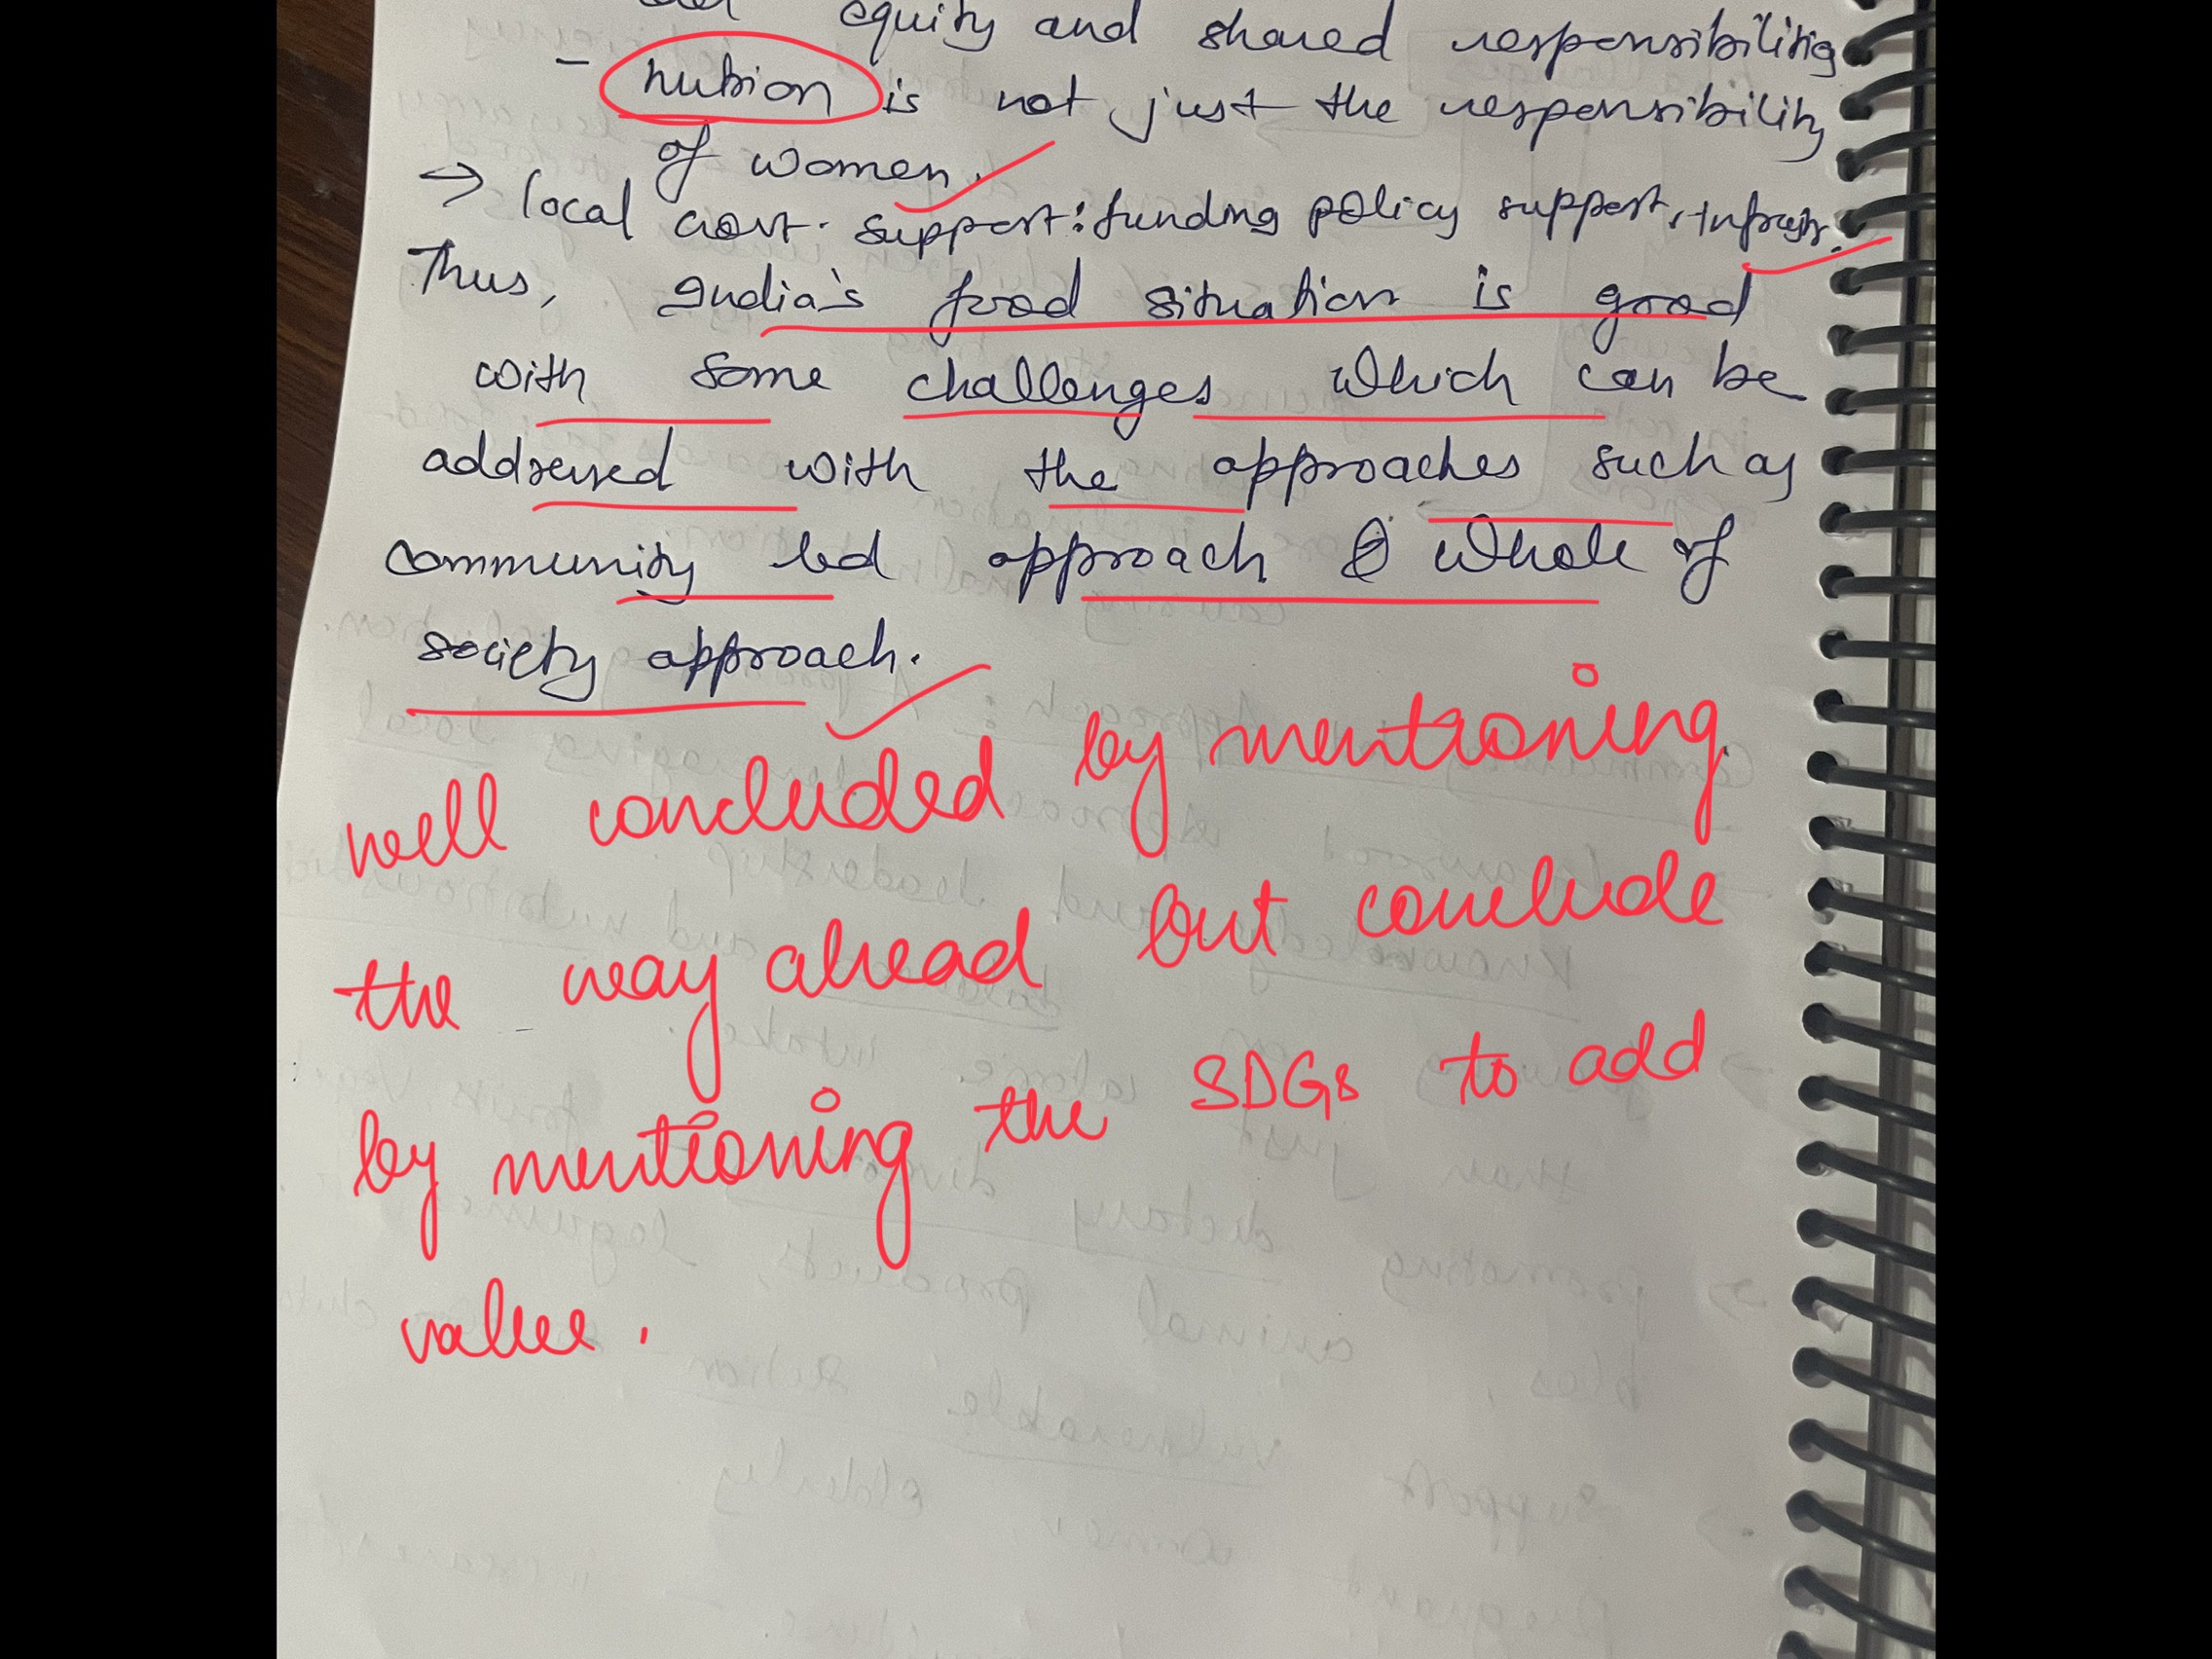 equity and shared responsibilitig
- nutrion is not just the responsibility
of women.
→ local Govt. support: funding policy support, Infrastr.
Thus, India's food situation is good
with some challenges which can be
addressed with the approaches such as
community led approach & whole of
society approach.
well concluded by mentioning
the way ahead but conclude
by mentioning the SDGs to add
value.